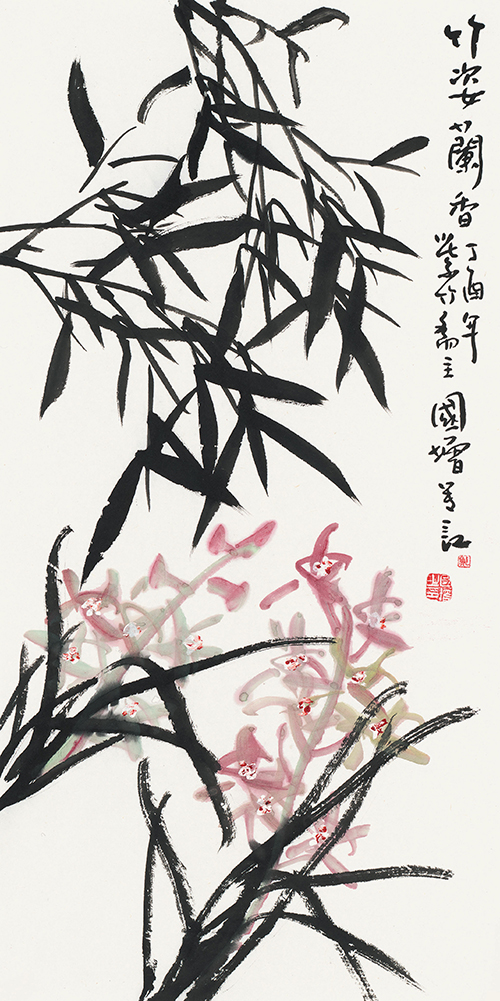 竹姿蘭香丁酉年
紫竹斋主國增并記